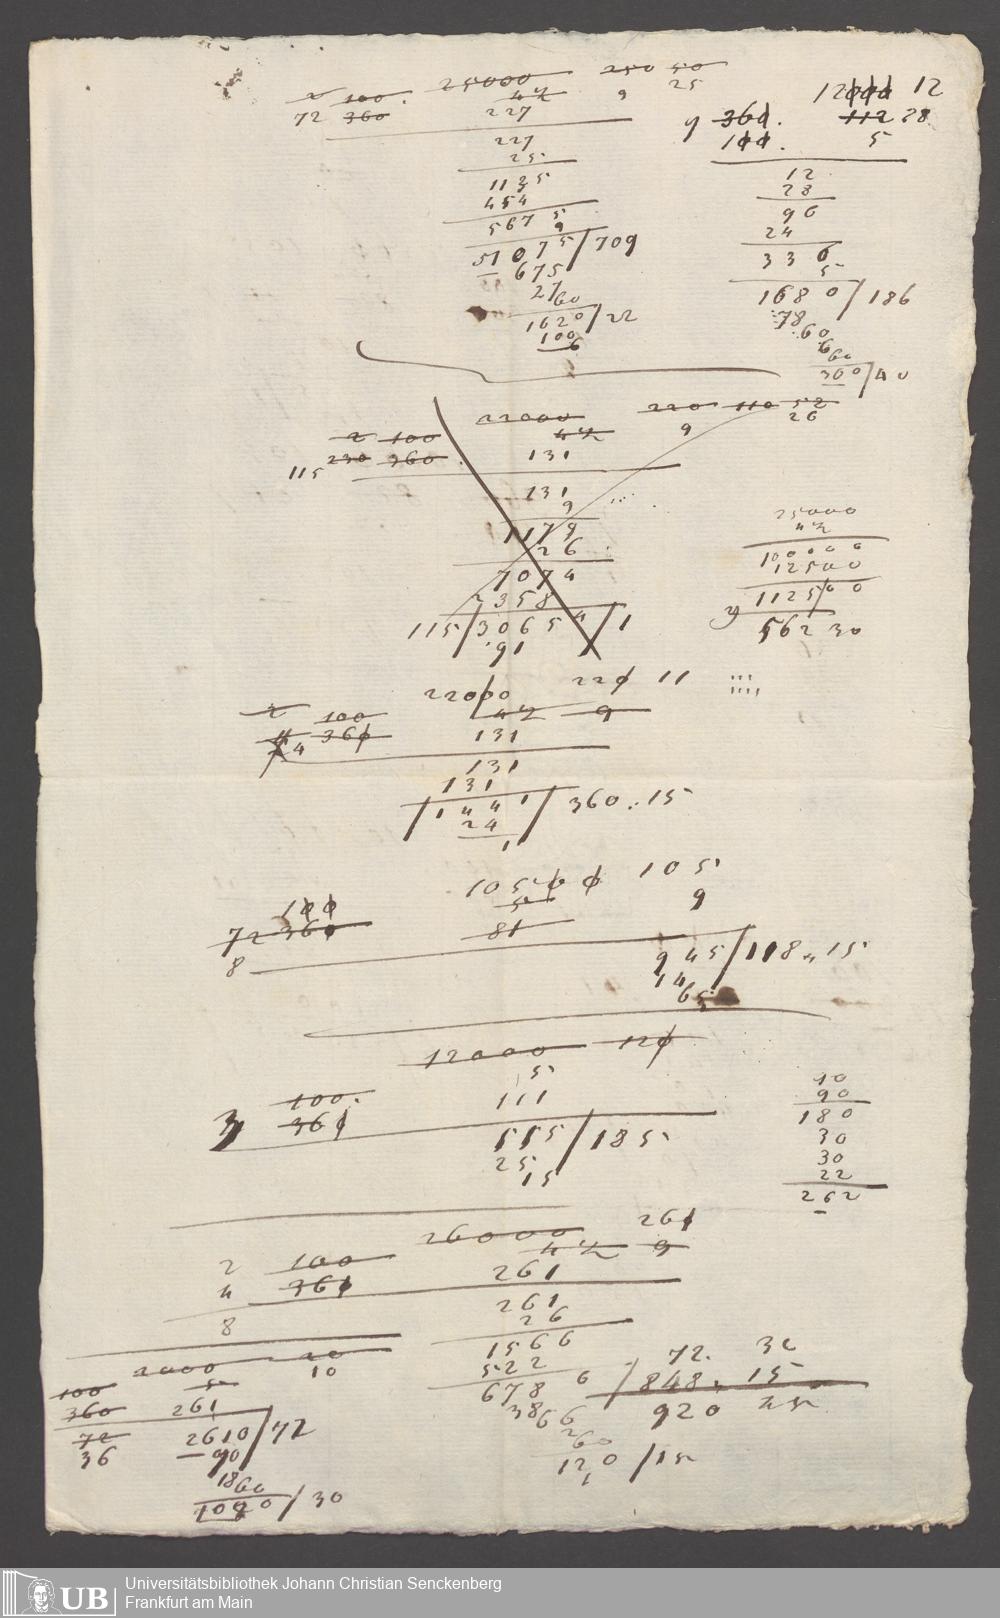 2 100. 25000 250 50
72 360 4½ 9 25
227
227
25
1135
454
5675
9
51075/709
675
27
60
1620/22
100
6
12000 12
9 360. 112 28
100. 5
12
28
96
24
336
5
1680/186
78
60
6
60
360/40
2 100 22000 220 110 52
115 230 360. 4½ 9 26
131
131
9
1179
26
7074
2358
115/30654/1
91
25000
4½
100000
12500
112500
56230
22000 220 11
2 100 4½ 9
4 360 131
131
131
/1441/360.15
24
1
100 10500 105
72 360 5 9
8 81
945/118,,15
14
65
12000 120
5
100. 111
360
555/185
25
15
10
90
180
30
30
22
262
26000 260
2 100 4½ 9
4 360 261
8
261
26
1566
522
6786/848,,15
38
66
260
120/15
1
72. 30
920 45
2000 20
100 5 10
360 261
72 2610/72
36 90
18
60
1080/30
Universitätsbibliothek Johann Christian Senckenberg
Frankfurt am Main
UB